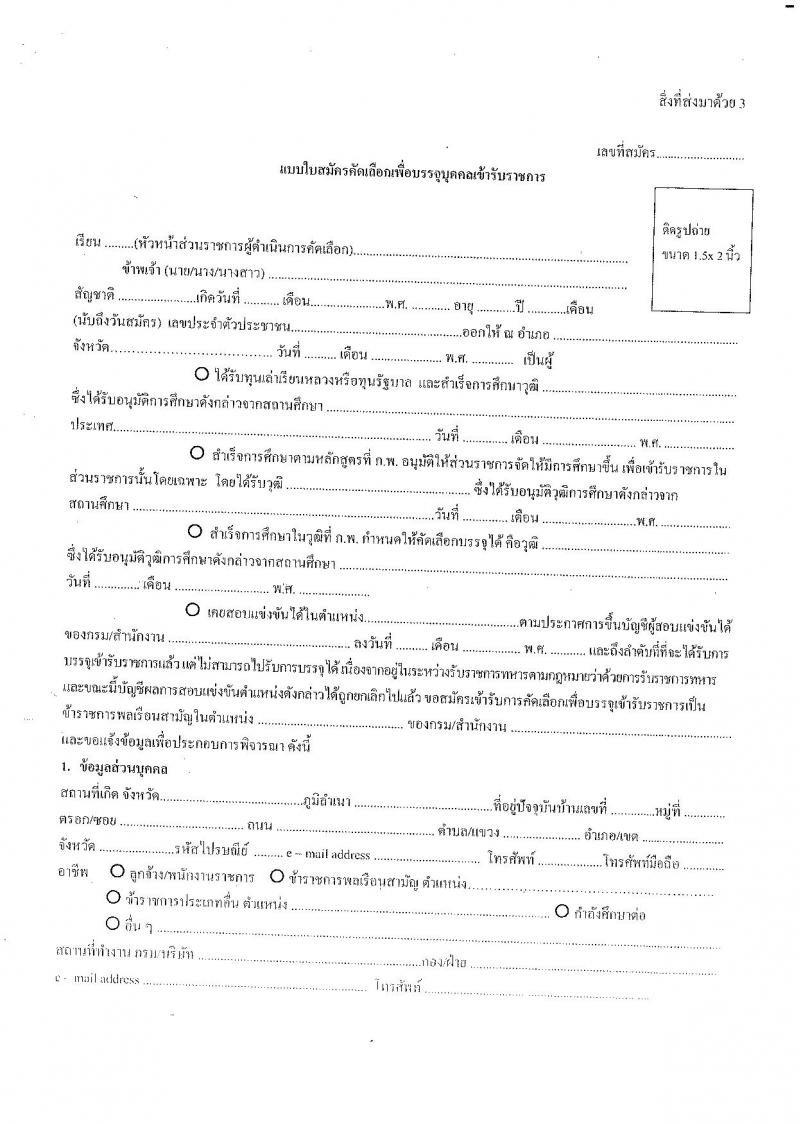 สิ่งที่ส่งมาด้วย 3
เลขที่สมัคร...........................
แบบใบสมัครคัดเลือกเพื่อบรรจุบุคคลเข้ารับราชการ
ติดรูปถ่าย
ขนาด 1.5x 2 นิ้ว
เรียน .........(หัวหน้าส่วนราชการผู้ดำเนินการคัดเลือก)...........................
ข้าพเจ้า (นาย/นาง/นางสาว) ...........................
สัญชาติ ......................เกิดวันที่ .......... เดือน......................พ.ศ. ............ อายุ ...........ปี ...........เดือน
(นับถึงวันสมัคร) เลขประจำตัวประชาชน...........................ออกให้ ณ อำเภอ ...........................
จังหวัด........................... วันที่ .......... เดือน .................... พ.ศ. ............. เป็นผู้
○ ได้รับทุนเล่าเรียนหลวงหรือทุนรัฐบาล และสำเร็จการศึกษาวุฒิ ...........................
ซึ่งได้รับอนุมัติการศึกษาดังกล่าวจากสถานศึกษา ...........................
ประเทศ........................... วันที่ ............. เดือน ........................... พ.ศ. ....................
○ สำเร็จการศึกษาตามหลักสูตรที่ ก.พ. อนุมัติให้ส่วนราชการจัดให้มีการศึกษาขึ้น เพื่อเข้ารับราชการใน
ส่วนราชการนั้นโดยเฉพาะ โดยได้รับวุฒิ ........................... ซึ่งได้รับอนุมัติวุฒิการศึกษาดังกล่าวจาก
สถานศึกษา ...........................วันที่ ............. เดือน ...........................พ.ศ. ....................
○ สำเร็จการศึกษาในวุฒิที่ ก.พ. กำหนดให้คัดเลือกบรรจุได้ คือวุฒิ ...........................
ซึ่งได้รับอนุมัติวุฒิการศึกษาดังกล่าวจากสถานศึกษา ...........................
วันที่ ............. เดือน ........................... พ.ศ. ....................
○ เคยสอบแข่งขันได้ในตำแหน่ง...........................ตามประกาศการขึ้นบัญชีผู้สอบแข่งขันได้
ของกรม/สำนักงาน ........................... ลงวันที่ ......... เดือน ................. พ.ศ. .......... และถึงลำดับที่ที่จะได้รับการ
บรรจุเข้ารับราชการแล้ว แต่ไม่สามารถไปรับการบรรจุได้ เนื่องจากอยู่ในระหว่างรับราชการทหารตามกฎหมายว่าด้วยการรับราชการทหาร
และขณะนี้บัญชีผลการสอบแข่งขันตำแหน่งดังกล่าวได้ถูกยกเลิกไปแล้ว ขอสมัครเข้ารับการคัดเลือกเพื่อบรรจุเข้ารับราชการเป็น
ข้าราชการพลเรือนสามัญในตำแหน่ง ........................... ของกรม/สำนักงาน ...........................
และขอแจ้งข้อมูลเพื่อประกอบการพิจารณา ดังนี้
1. ข้อมูลส่วนบุคคล
สถานที่เกิด จังหวัด...........................ภูมิลำเนา ...........................ที่อยู่ปัจจุบันบ้านเลขที่ ............หมู่ที่ ............
ตรอก/ซอย ........................... ถนน ........................... ตำบล/แขวง .................... อำเภอ/เขต ....................
จังหวัด ....................รหัสไปรษณีย์ ......... e – mail address ........................... โทรศัพท์ .................โทรศัพท์มือถือ ..........
อาชีพ ○ ลูกจ้าง/พนักงานราชการ ○ ข้าราชการพลเรือนสามัญ ตำแหน่ง...........................
○ ข้าราชการประเภทอื่น ตำแหน่ง ........................... ○ กำลังศึกษาต่อ
○ อื่น ๆ ...........................
สถานที่ทำงาน กรม/บริษัท ...........................กอง/ฝ่าย ...........................
e - mail address ........................... โทรศัพท์ ...........................